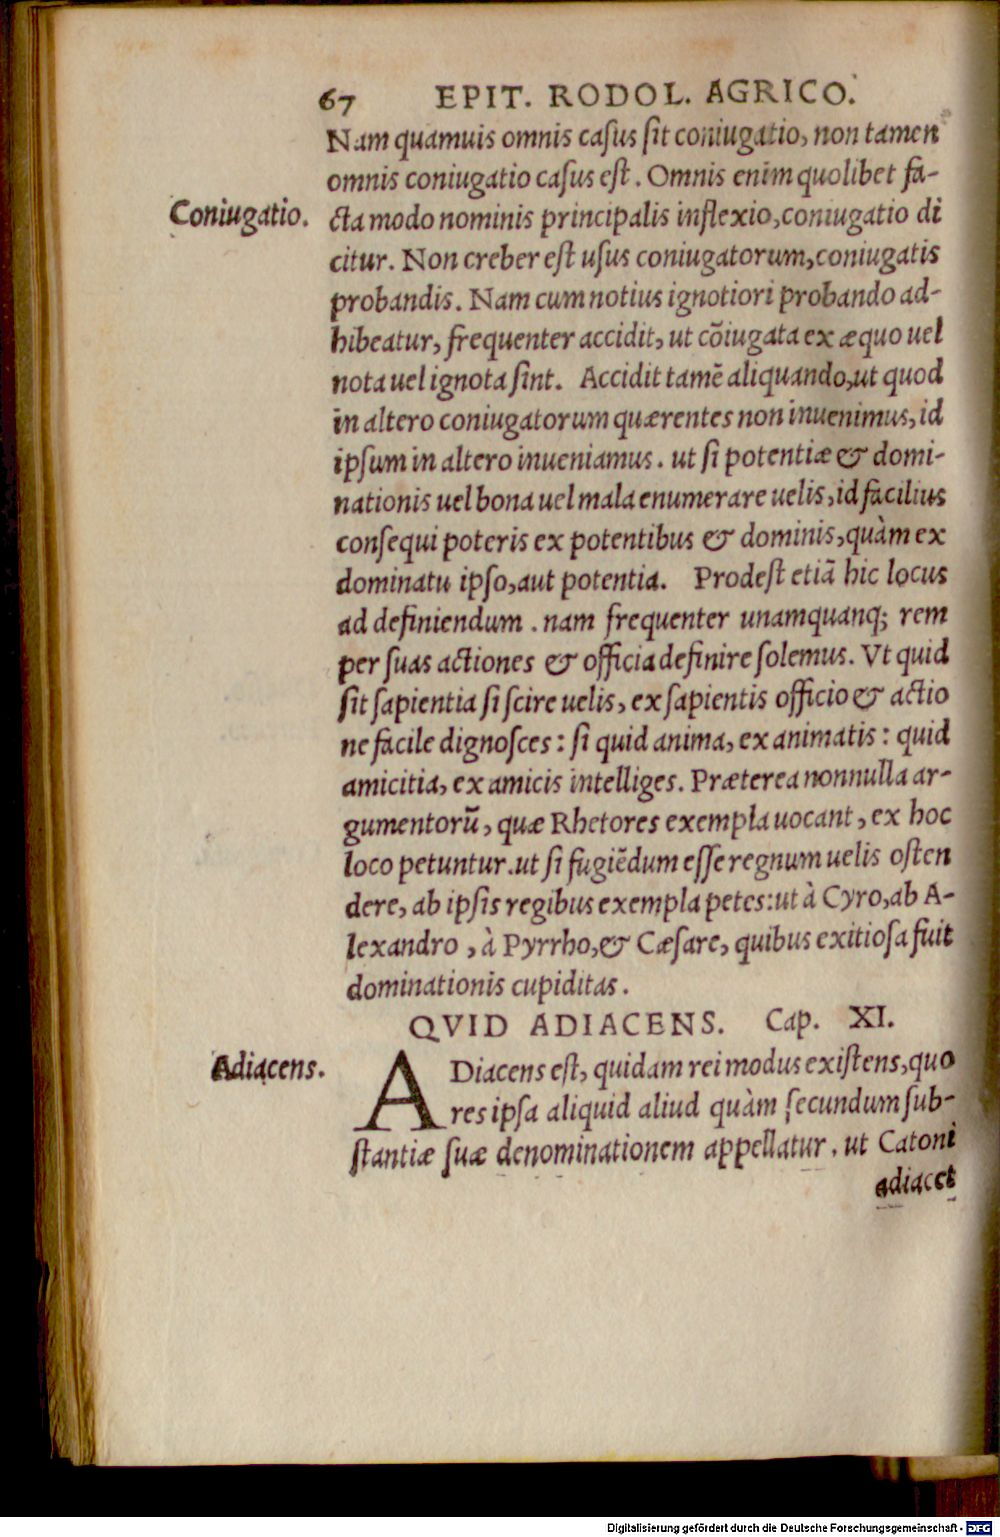 67 EPIT. RODOL. AGRICO.
Nam quamuis omnis casus sit coniugatio, non tamen
omnis coniugatio casus est. Omnis enim quolibet fa-
Coniugatio.
cta modo nominis principalis inflexio, coniugatio di
citur. Non creber est usus coniugatorum, coniugatis
probandis. Nam cum notius ignotiori probando ad-
hibeatur, frequenter accidit, ut cõiugata ex æquo uel
nota uel ignota sint. Accidit tamẽ aliquando, ut quod
in altero coniugatorum quærentes non inuenimus, id
ipsum in altero inueniamus. ut si potentiæ & domi-
nationis uel bona uel mala enumerare uelis, id facilius
consequi poteris ex potentibus & dominis, quàm ex
dominatu ipso, aut potentia. Prodest etiã hic locus
ad definiendum. nam frequenter unamquanq; rem
per suas actiones & officia definire solemus. Vt quid
sit sapientia si scire uelis, ex sapientis officio & actio
ne facile dignosces: si quid anima, ex animatis: quid
amicitia, ex amicis intelliges. Præterea nonnulla ar-
gumentorũ, quæ Rhetores exempla uocant, ex hoc
loco petuntur. ut si fugiẽdum esse regnum uelis osten
dere, ab ipsis regibus exempla petes: ut à Cyro, ab A-
lexandro, à Pyrrho, & Cæsare, quibus exitiosa fuit
dominationis cupiditas.
QVID ADIACENS. Cap. XI.
Adiacens.
ADiacens est, quidam rei modus existens, quo
res ipsa aliquid aliud quàm secundum sub-
stantiæ suæ denominationem appellatur. ut Catoni
adiacet
Digitalisierung gefördert durch die Deutsche Forschungsgemeinschaft - DFG